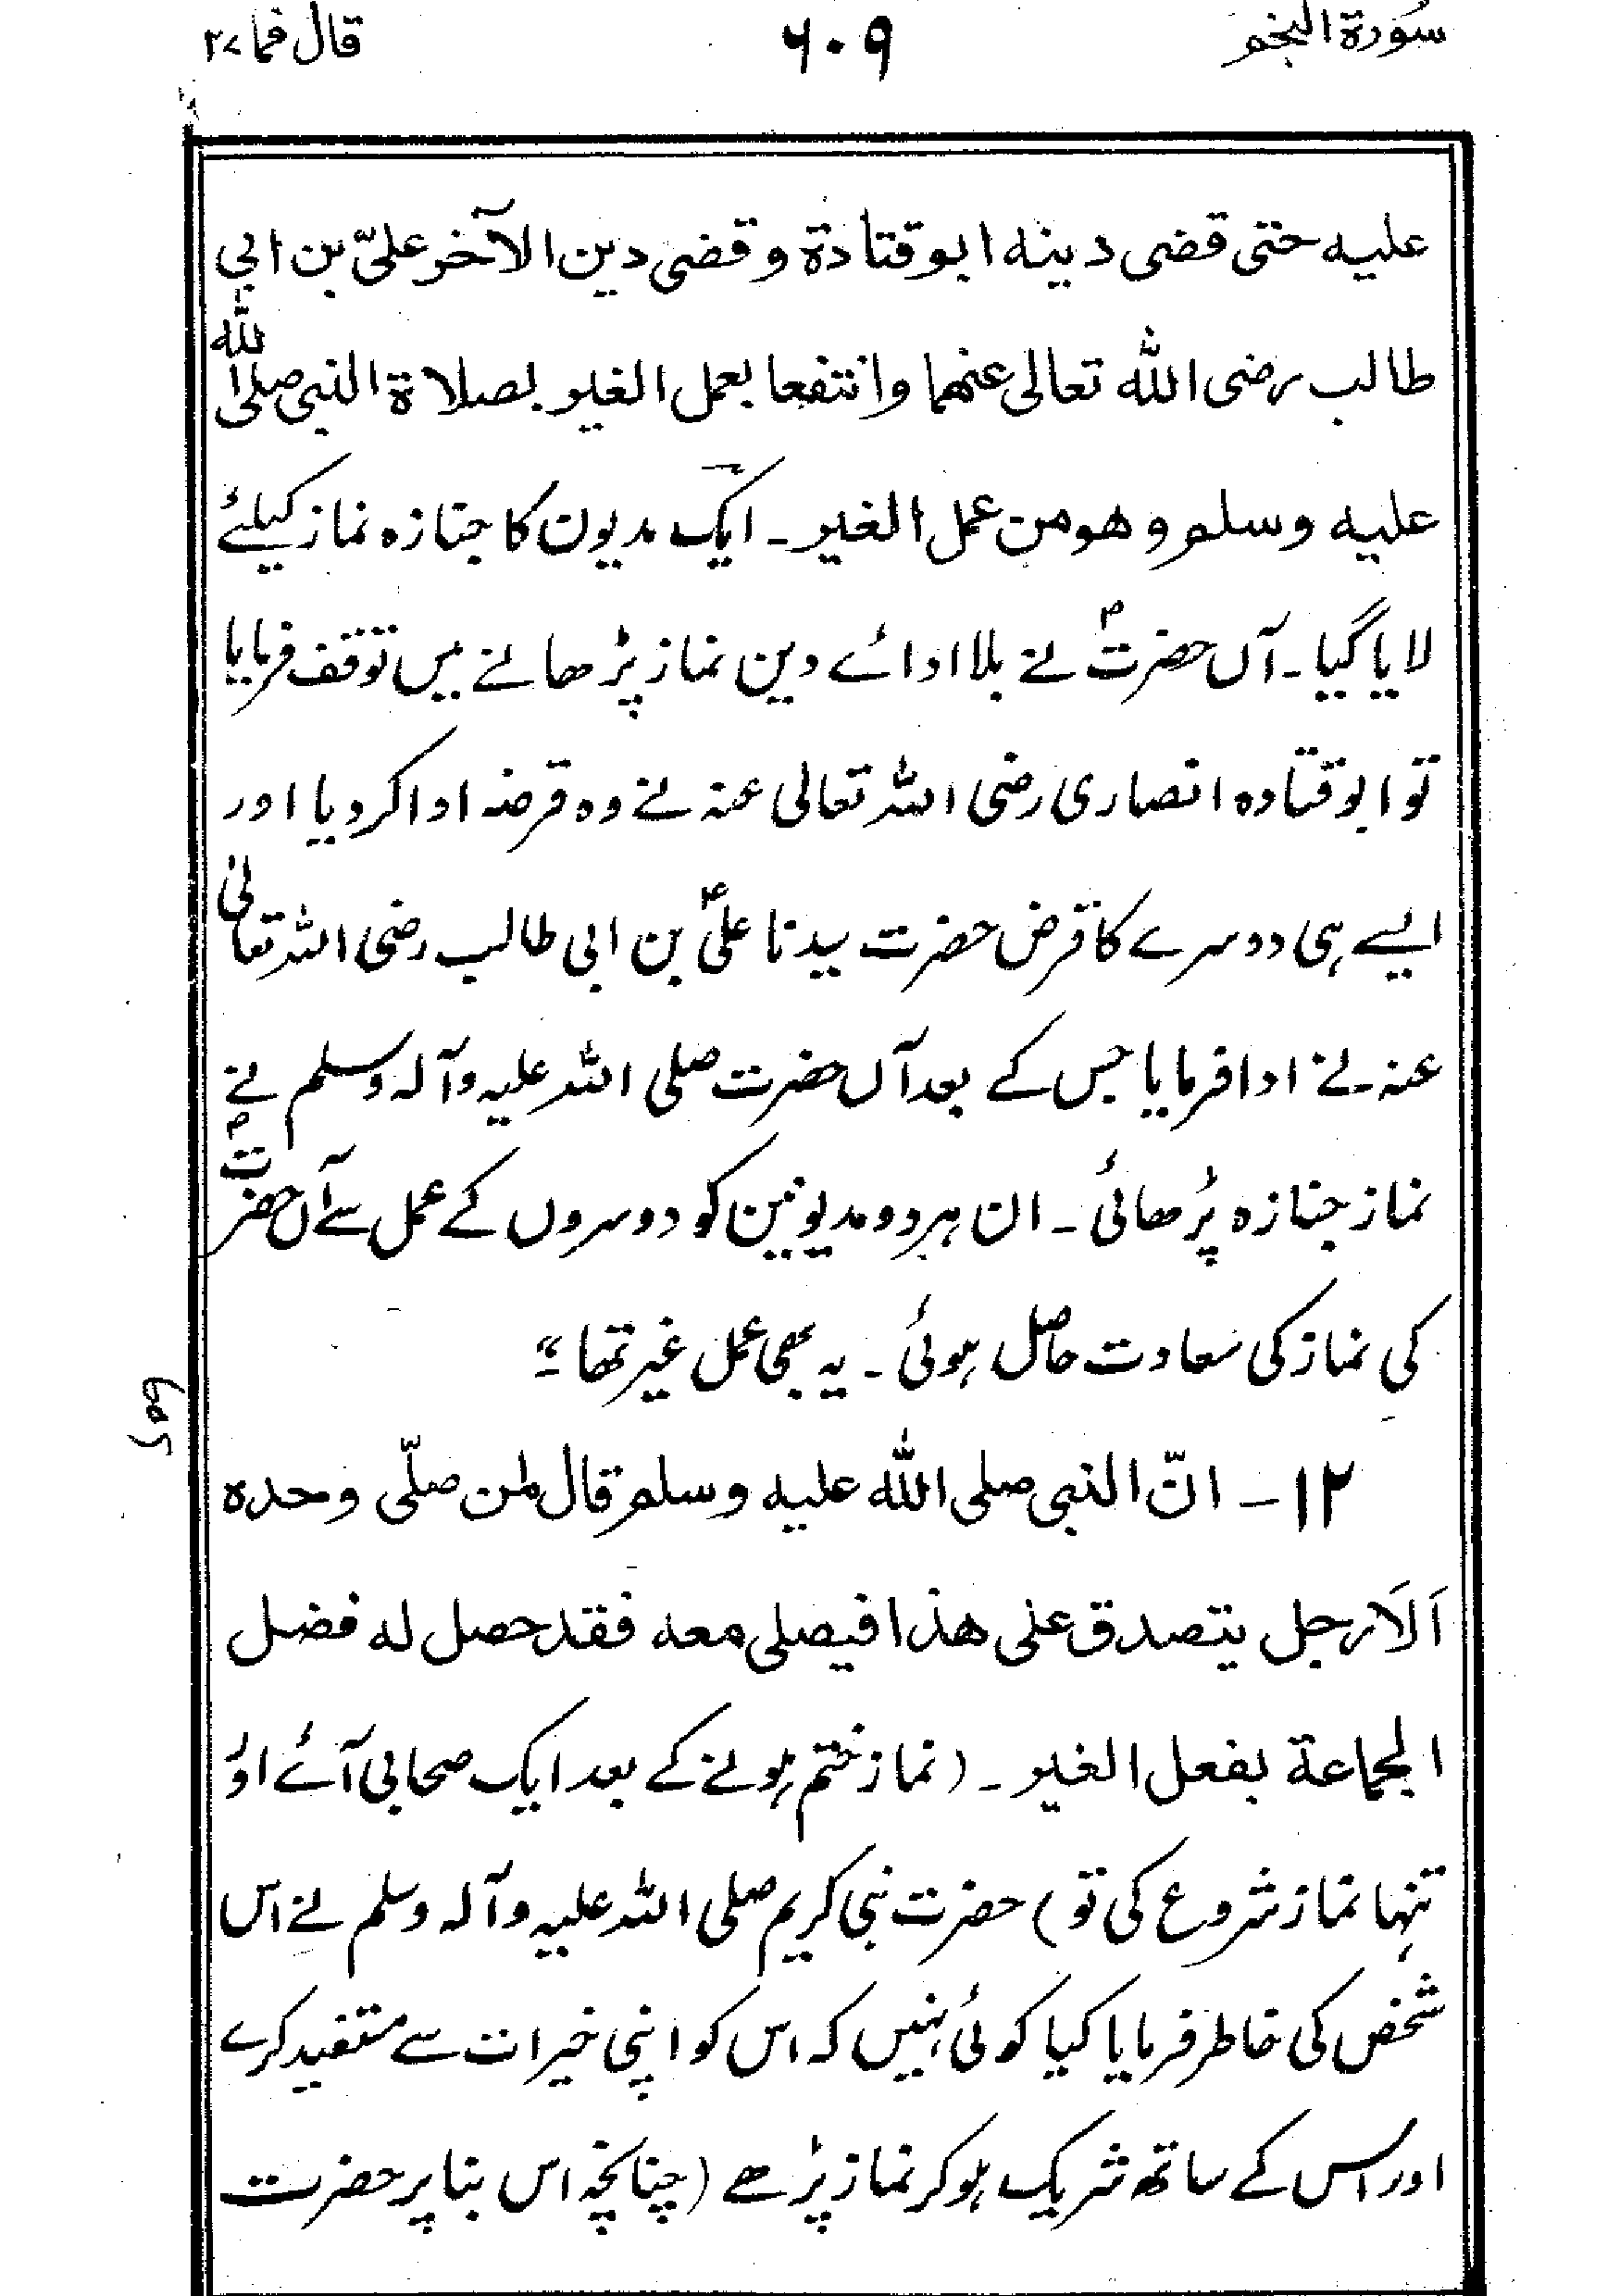 سورة النجم ۶۰۹ قال فما ۲۷
علیہ حتی قضی دینہ ابو قتادة و قضی دین الآخر علیّ بن ابی
طالب رضی اللہ تعالی عنهما وانتفعا بعمل الغیر بصلاة النبی صلی اللہ
علیہ وسلم و هو من عمل الغیر۔ ایک مدیون کا جنازہ نماز کیلئے
لایا گیا۔ آں حضرتؐ نے بلا ادائے دین نماز پڑھانے میں توقف فرمایا
تو ابو قتادہ انصاری رضی اللہ تعالی عنہ نے وہ قرضہ ادا کر دیا اور
ایسے ہی دوسرے کا قرض حضرت سیدنا علیؑ بن ابی طالب رضی اللہ تعالیٰ
عنہ نے ادا فرمایا جس کے بعد آں حضرت صلی اللہ علیہ وآلہ وسلم نے
نماز جنازہ پڑھائی۔ ان ہر دو مدیونین کو دوسروں کے عمل سے آں حضرتؐ
کی نماز کی سعادت حاصل ہوئی۔ یہ بھی عمل غیر تھا۔"
605
۱۲۔ انّ النبی صلی اللہ علیہ وسلم قال لمن صلّی وحدہ
اَلَا رجل یتصدق علی هذا فیصلی معه فقد حصل له فضل
الجماعة بفعل الغیر۔ (نماز ختم ہونے کے بعد ایک صحابی آئے اور
تنہا نماز شروع کی تو) حضرت نبی کریم صلی اللہ علیہ وآلہ وسلم نے اس
شخص کی خاطر فرمایا کیا کوئی نہیں کہ اس کو اپنی خیرات سے مستفید کرے
اور اس کے ساتھ شریک ہو کر نماز پڑھے (چنانچہ اس بنا پر حضرت